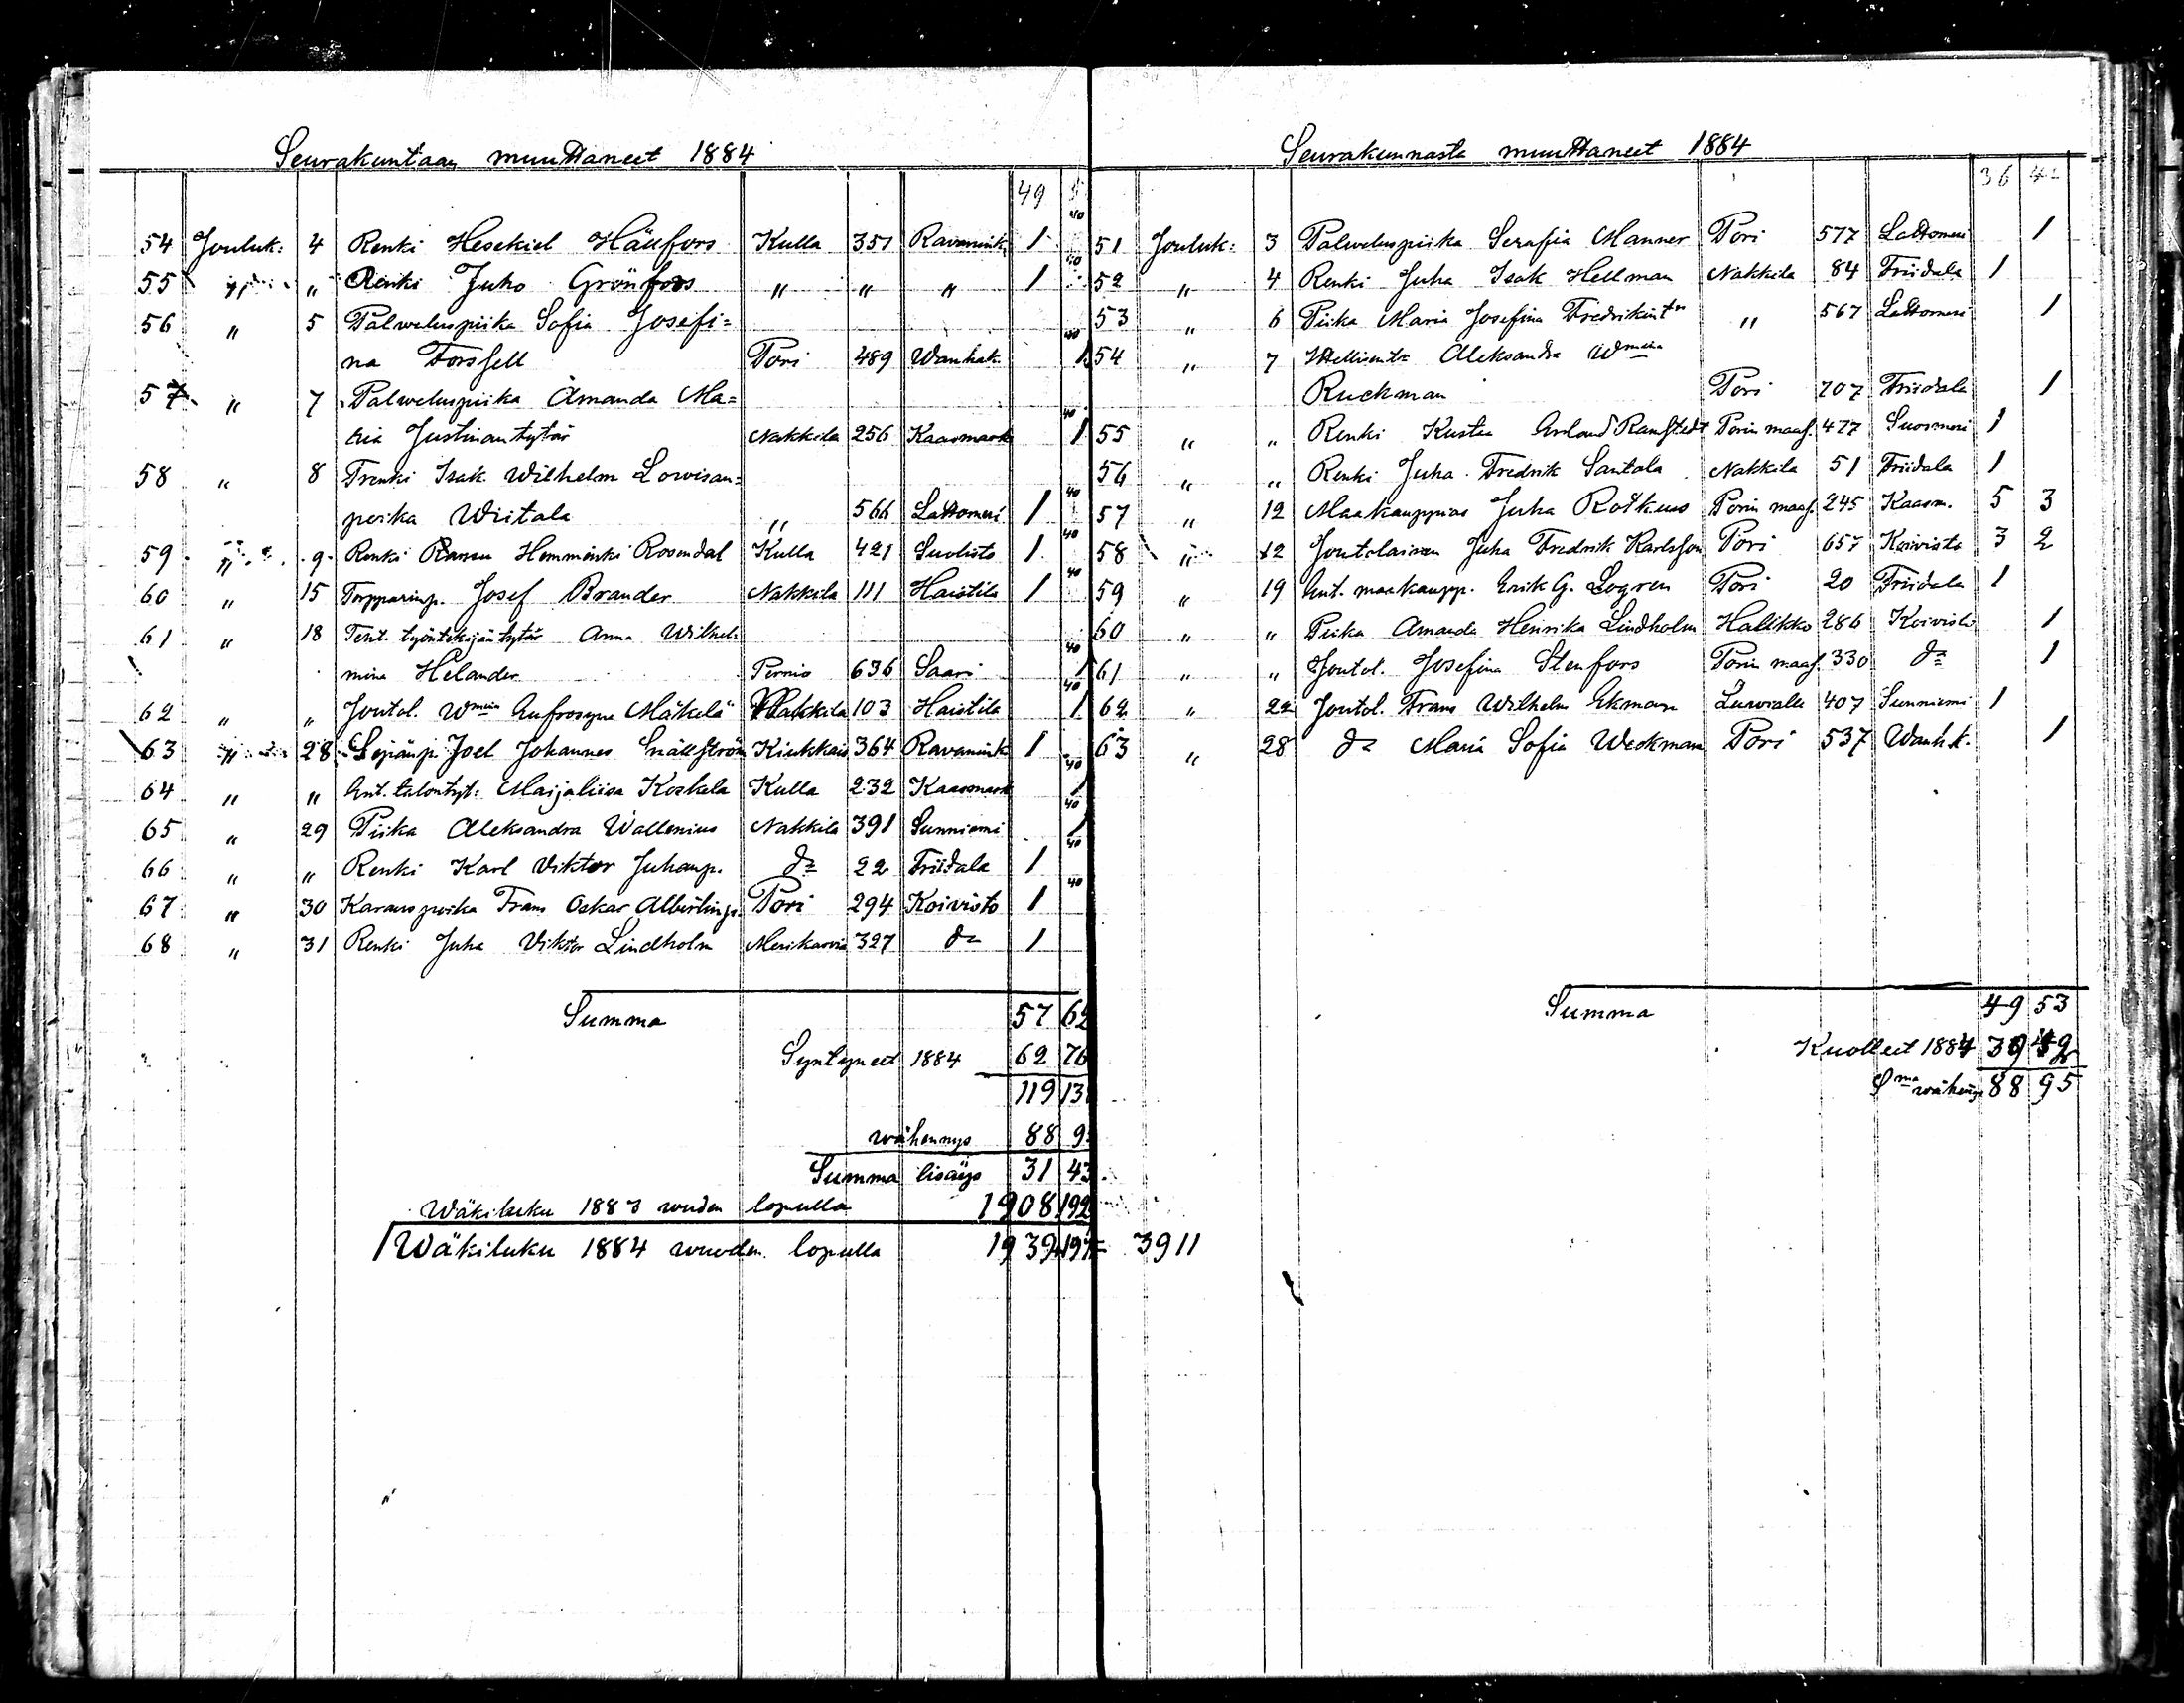 Seurakuntaan muuttaneet 1884
49
54 Jouluk: 4 Renki Hesekiel Hällfors Kulla 351 Ravanink. 1
55 " " Renki Juho Grönfors " " " 1
56 " 5 Palweluspiika Sofia Josefi=
na Forssell Pori 489 Wanhak. 1
57 " 7 Palweluspiika Amanda Ma=
ria Justinantytär Nakkila 256 Kaasmark 1
58 " 8 Trenki Isak Wilhelm Lowisan=
poika Wiitala " 566 Lattomeri 1
59 " 9 Renki Ransu Hemminki Rosendal Kulla 421 Suolisto 1
60 " 15 Torpparinp. Josef Brander Nakkila 111 Haistila 1
61 " 18 Tent. työntekijän tytär Anna Wilhel-
mina Helander Perniö 636 Saari 1
62 " " Joutol. Wmaia Eufrosyne Mäkelä Nakkila 103 Haistila 1
63 " 28 Sepänp. Joel Johannes Snällström Kiukkais 364 Ravanink 1
64 " " Ent. talontyt: Maijaliisa Koskela Kulla 232 Kaasmark 1
65 " 29 Piika Aleksandra Wallenius Nakkila 391 Sunniemi 1
66 " " Renki Karl Viktor Juhanp. do 22 Friidala 1
67 " 30 Karauspoika Frans Oskar Albertinp. Pori 294 Koivisto 1
68 " 31 Renki Juha Viktor Lindholm Merikarvia 327 do 1
Summa 57 62
Syntyneet 1884 62 76
119 13
wähennys 88 9
Summa lisäys 31 43
Wäkiluku 1883 wuden lopulla 1908 192
Wäkiluku 1884 wuoden lopulla 1939 197 = 3911
Seurakunnasta muuttaneet 1884
36 42
51 Jouluk: 3 Palweluspiika Serafia Manner Pori 577 Lattomeri 1
52 " 4 Renki Juha Isak Hellman Nakkila 84 Friidala 1
53 " 6 Piika Maria Josefina Fredrikintr " 567 Lattomeri 1
54 " 7 Itellisentr Aleksandra Wmaia
Ruckman Pori 207 Friidala 1
55 " " Renki Kustaa Ramstedt Porin maas. 477 Suosmeri 1
56 " " Renki Juha Fredrik Santala Nakkila 51 Friidala 1
57 " 12 Maakauppias Juha Rotkus Porin maas. 245 Kaasm. 5 3
58 " 12 Joutolainen Juha Fredrik Karlsson Pori 657 Koivisto 3 2
59 " 19 Ent. maakaupp. Erik G. Logren Pori 20 Friidala 1
60 " " Piika Amanda Henrika Lindholm Halikko 286 Koivisto 1
61 " " Joutol. Josefina Stenfors Porin maas. 330 do 1
62 " 22 Joutol. Frans Wilhelm Ekman Luvialla 407 Sunniemi 1
63 " 28 do Maria Sofia Weckman Pori 537 Wanh.k. 1
Summa 49 53
Kuolleet 1884 39 42
Sma wähenys 88 95